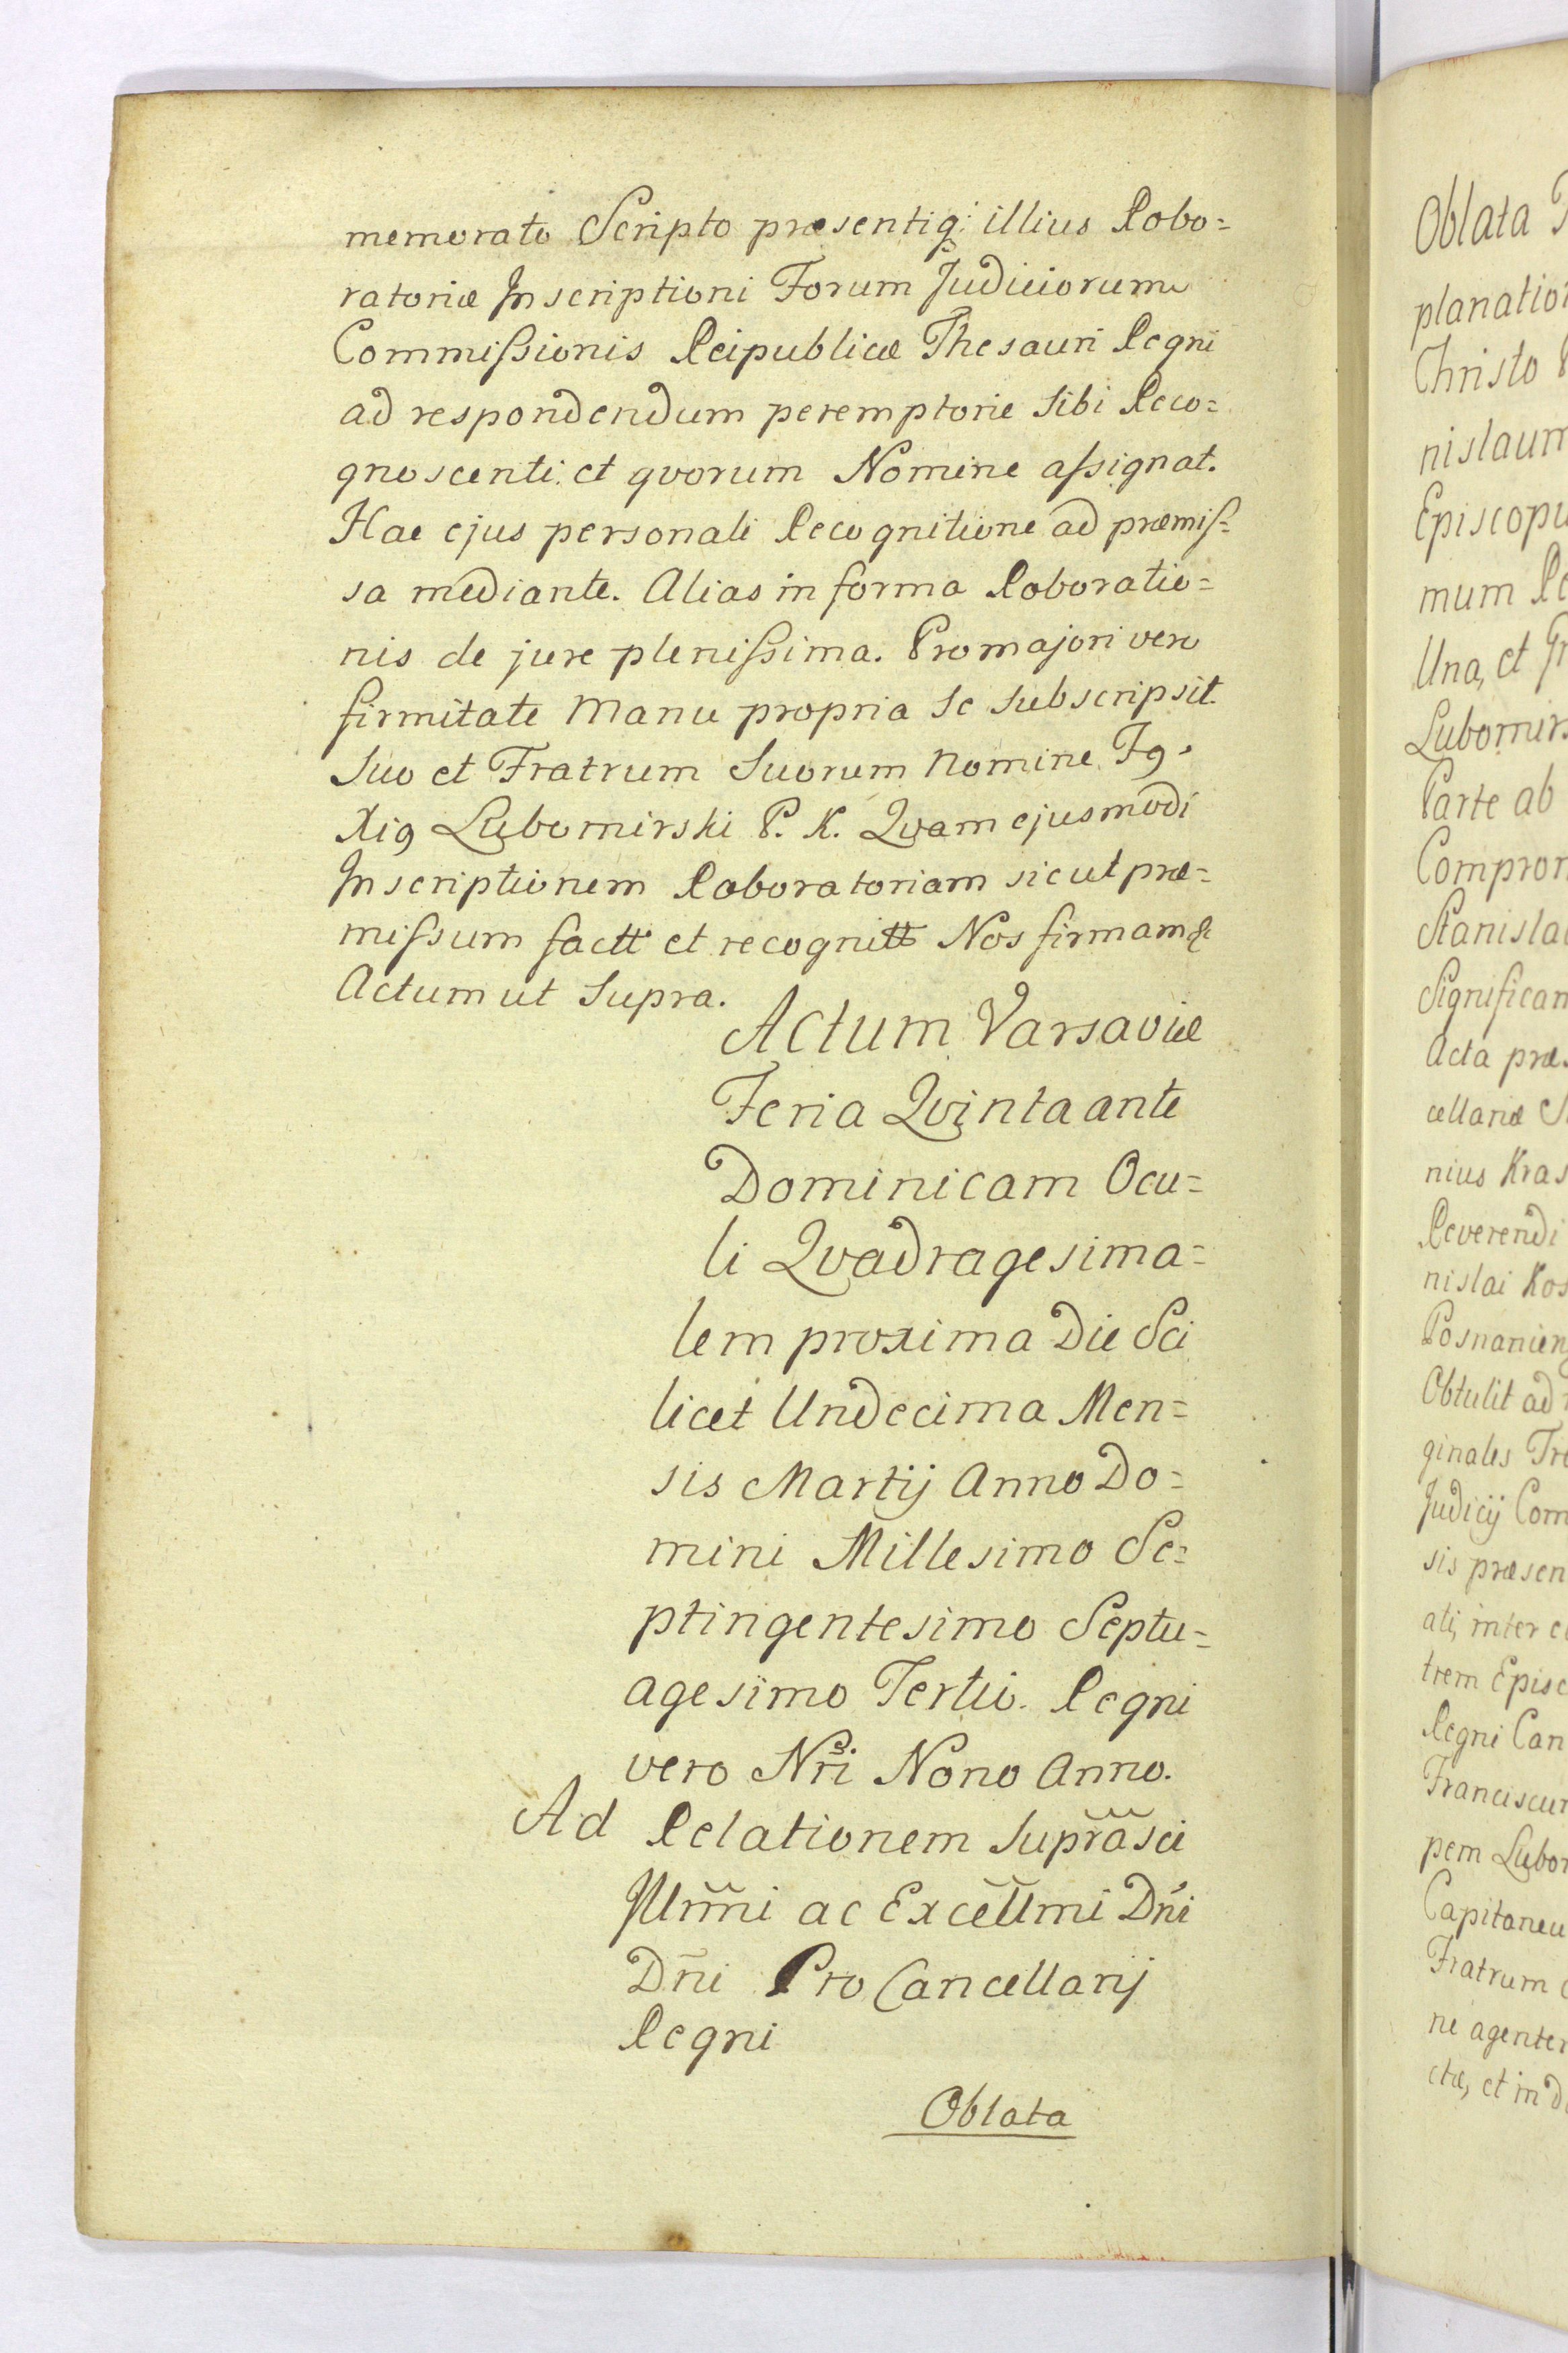 memorato Scripto præsentiq: illius Robo=
ratoriæ Inscriptioni Forum Judiciorum
Commißionis Reipublicæ Thesauri Regni
ad respondendum peremptorie sibi Reco=
gnoscenti et qvorum Nomine aßignat.
Hac ejus personali Recognitione ad præmiß=
sa mediante. Alias in forma Roboratio=
nis de jure plenißima. Pro majori vero
firmitate Manu propria se subscripsit.
Suo et Fratrum Suorum Nomine F9.
Xi9 Lubomirski P. K. Qvam ejusmodi
Inscriptionem Roboratoriam sicut præ=
mißum factt et recognitt Nos firmam &
Actum ut Supra.
Actum Varsaviæ
Feria Qvinta ante
Dominicam Ocu=
li Qvadragesima=
lem proxima Die Sci
licet Undecima Men=
sis Martij Anno Do=
mini Millesimo Se=
ptingentesimo Septu=
agesimo Tertio. Regni
vero Nr̃i Nono Anno.
Ad Relationem Supr̃asci
Illm̃ni ac Excẽllmi Dñi
Dñi Pro Cancellarij
Regni
Oblata
Oblata
planatio
Christo
nislaum
Episcopu
mum Re
Una, et
Lubomirs
Parte ab
Comprom
Stanisla
Significan
Acta præs
cellariæ
nius Kras
Reverendi
nislai Kos
Posnanien
Obtulit ad
ginales
Judicij Com
sis præsen
ati, inter
trem Episc
Regni Can
Franciscum
pem Lubom
Capitaneu
Fratrum
ne agenter
ctæ, et in